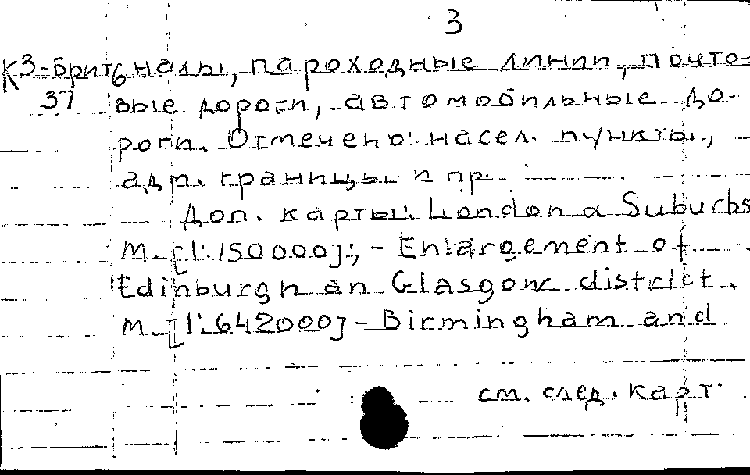 3
К3-Брит налы, пароходные линии, почто-
37 вые дороги, автомобильные до-
роги. Отмечено: насел. пункты,
адр. границы и пр.
Доп. карты: London a Suburbs
М. [1:150000]; - Enlargement of
Edinburgh an Glasgow district.
М. [1:642000] - Birmingham and
см. след. карт.